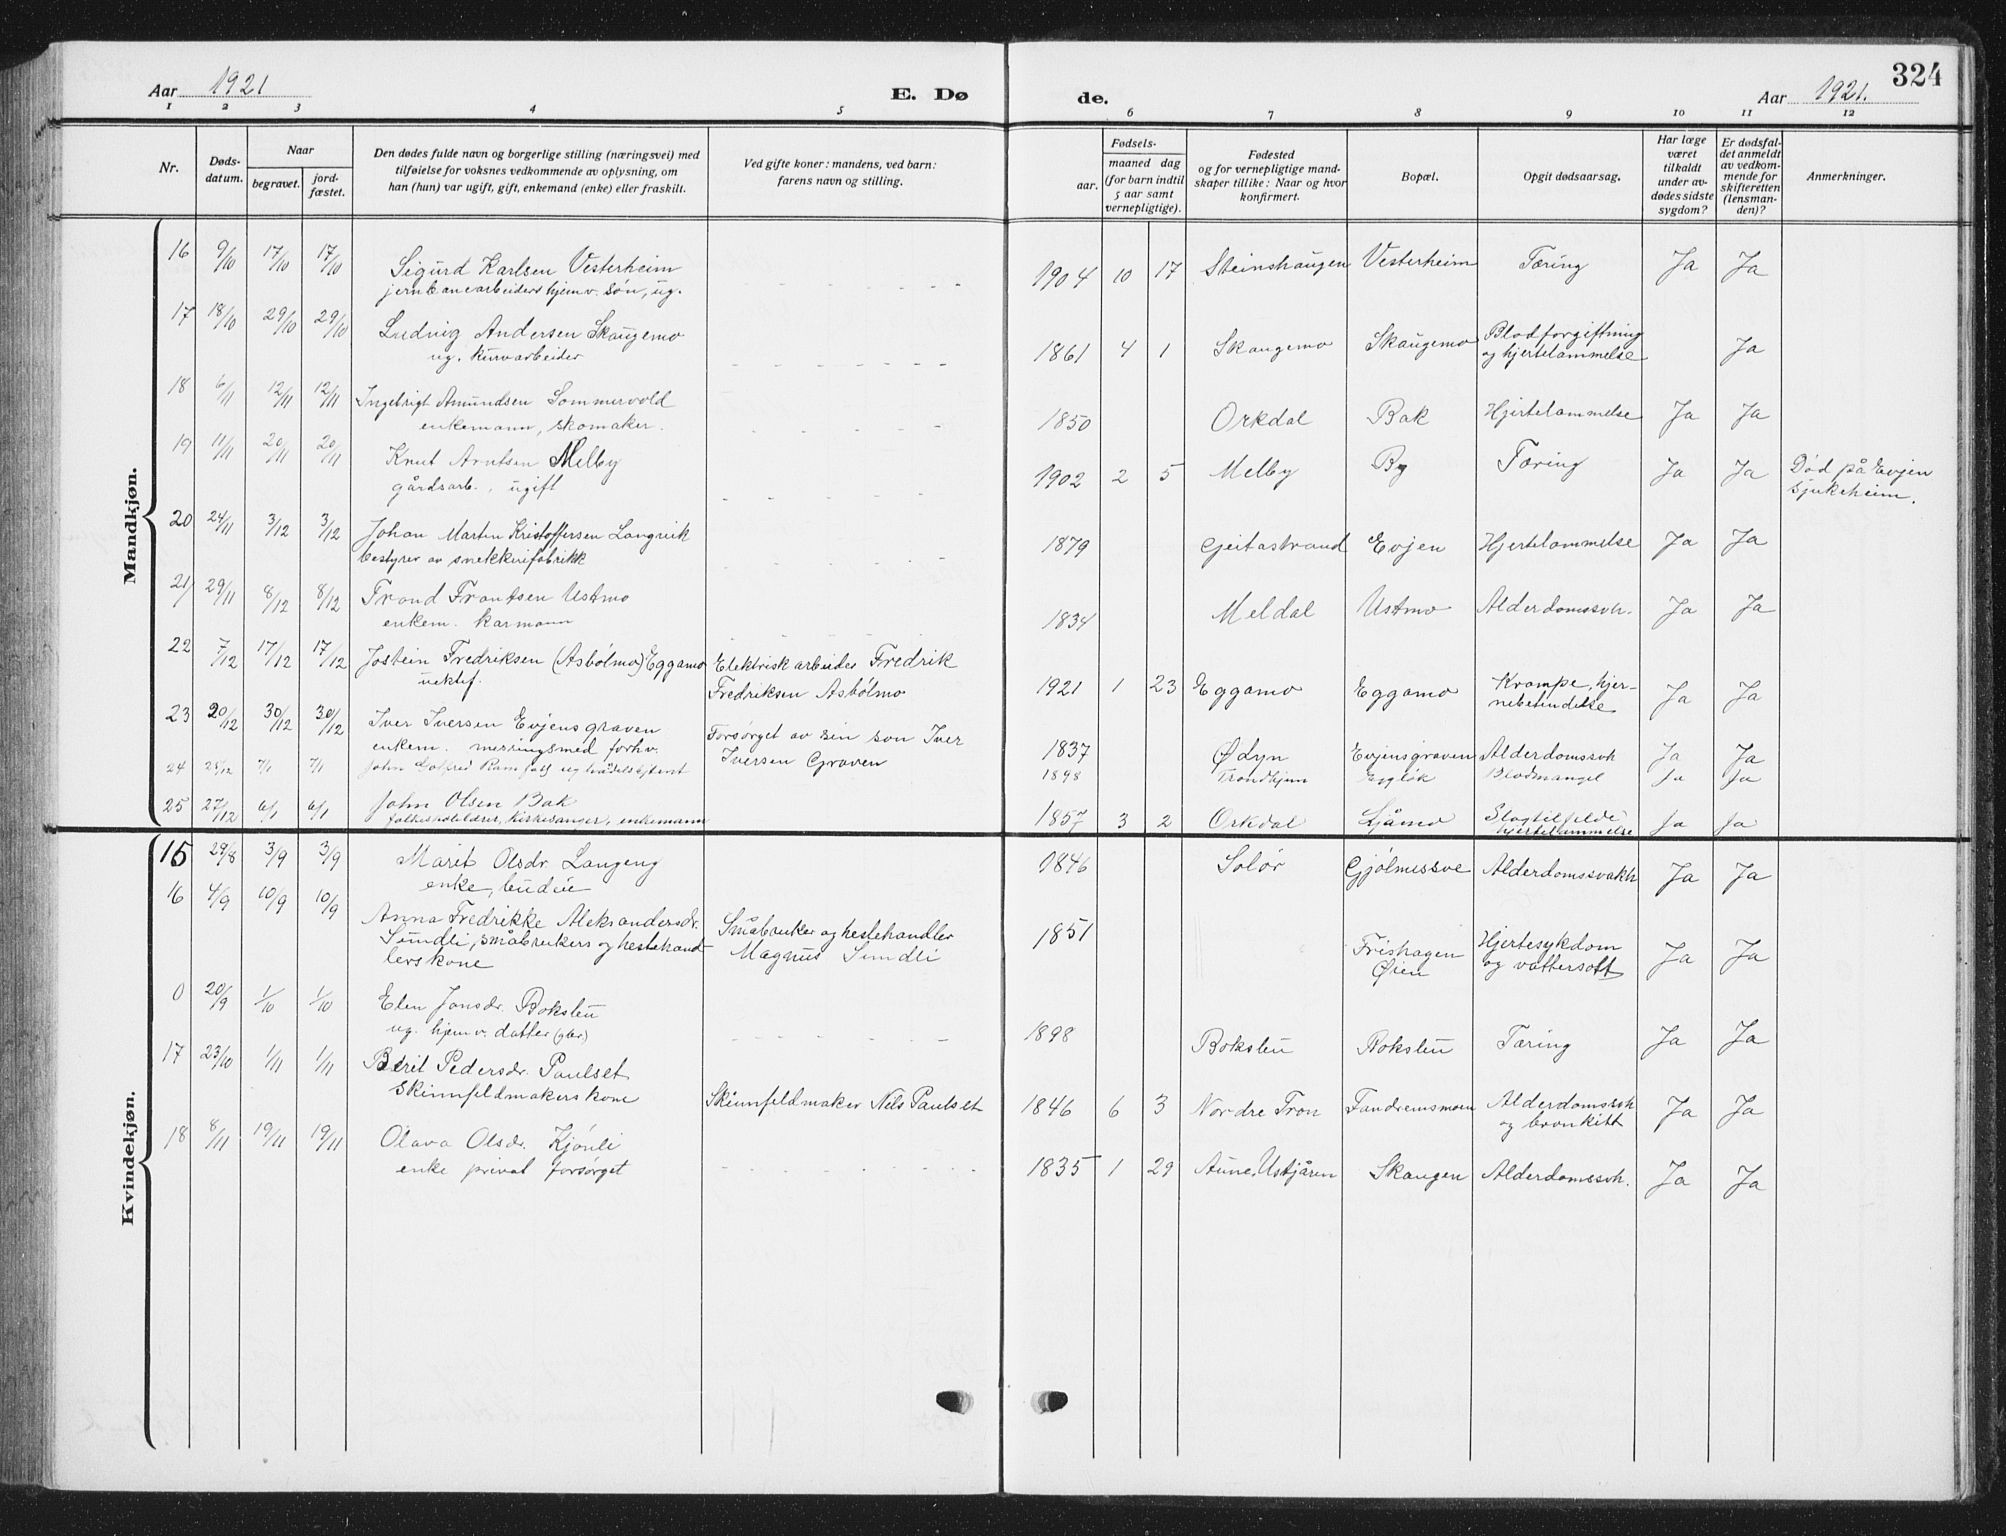 Aar 1921
E. Dø
de.
Aar 1921.
324
1 2 3 4 5 6 7 8 9 10 11 12
Nr.
Døds-
datum.
Naar
begravet.
jord-
fæstet.
Den dødes fulde navn og borgerlige stilling (næringsvei) med
tilføielse for voksnes vedkommende av oplysning, om
han (hun) var ugift, gift, enkemand (enke) eller fraskilt.
Ved gifte koner: mandens, ved barn:
farens navn og stilling.
Fødsels-
aar.
maaned dag
(for barn indtil
5 aar samt
vernepligtige).
Fødested
og for vernepligtige mand-
skaper tillike: Naar og hvor
konfirmert.
Bopæl.
Opgit dødsaarsag.
Har læge
været
tilkaldt
under av-
dødes sidste
sygdom?
Er dødsfal-
det anmeldt
av vedkom-
mende for
skifteretten
(lensman-
den)?
Anmerkninger.
Mandkjøn.
16 9/10 17/10 17/10 Sigurd Karlsen Vesterheim 1904 10 17 Steinshaugen Vesterheim Tæring Ja Ja
jernbanearbeiders hjemv. søn, ug.
17 18/10 29/10 29/10 Ludvig Andersen Skaugemo 1861 4 1 Skaugemo Skaugemo Blodforgiftning Ja
ug. kurvarbeider og hjertelammelse
18 6/11 12/11 12/11 Ingebrigt Amundsen Sommervold 1850 Orkdal Bak Hjertelammelse Ja Ja
enkemann, skomaker.
19 11/11 20/11 20/11 Knut Arntsen Melby 1902 2 5 Melby By Tæring Ja Ja Død på Evjen
gårdsarb., ugift sjukeheim.
20 24/11 3/12 3/12 Johan Martin Kristoffersen Langvik 1879 Geitastrand Evjen Hjertelammelse Ja Ja
bestyrer av snekkerifabrikk
21 29/11 8/12 8/12 Trond Frantsen Ustmo 1834 Meldal Ustmo Alderdomssvh. Ja Ja
enkem. karmann
22 7/12 17/12 17/12 Jostein Fredriksen (Asbølmo) Eggamo Elektrisk arbeider Fredrik 1921 1 23 Eggamo Eggamo Krampe, hjer- Ja Ja
uektef. Fredriksen Asbølmo nebetendelse
23 20/12 30/12 30/12 Iver Iversen Evjensgraven Forsørget av sin son Iver 1837 Ødyn Evjensgraven Alderdomssvh Ja Ja
enkem. messingsmed forhv. Iversen Graven
24 7/1 7/1 John 1898 Trondhjem Blodmangel Ja Ja
25 27/12 6/1 6/1 John Olsen Bak 1857 3 2 Orkdal Ljåmo Slagtilfelde, Ja Ja
folkeskolelærer, kirkesanger, enkemann hjertelammelse
Kvindekjøn.
15 29/8 3/9 3/9 Marit Olsdr. Langeng 1846 Solør Gjølmessve Alderdomssvakh Ja Ja
enke, budeie
16 4/9 10/9 10/9 Anna Fredrikke Aleksandersdr. Småbruker og hestehandler 1851 Frishagen Hjertesykdom Ja Ja
Sundli, småbrukers og hestehand- Magnus Sundli Øien og vattersott
lerskone
0 20/9 1/10 1/10 Elen Jonsdr. Boksleu 1898 Boksleu Boksleu Tæring Ja Ja
ug. hjemv. datter
17 23/10 1/11 1/11 Berit Pedersdr. Paulset Skinnfeldmaker Nels Paulset 1846 6 3 Nordre Tron Fandremsmoen Alderdomssvh Ja Ja
Skinnfeldmakerskone og bronkitt
18 8/11 19/11 19/11 Olava Olsdr. Kjønli 1835 1 29 Aune, Ustjåren Skaugen Alderdomssvh. Ja Ja
enke privat forsørget